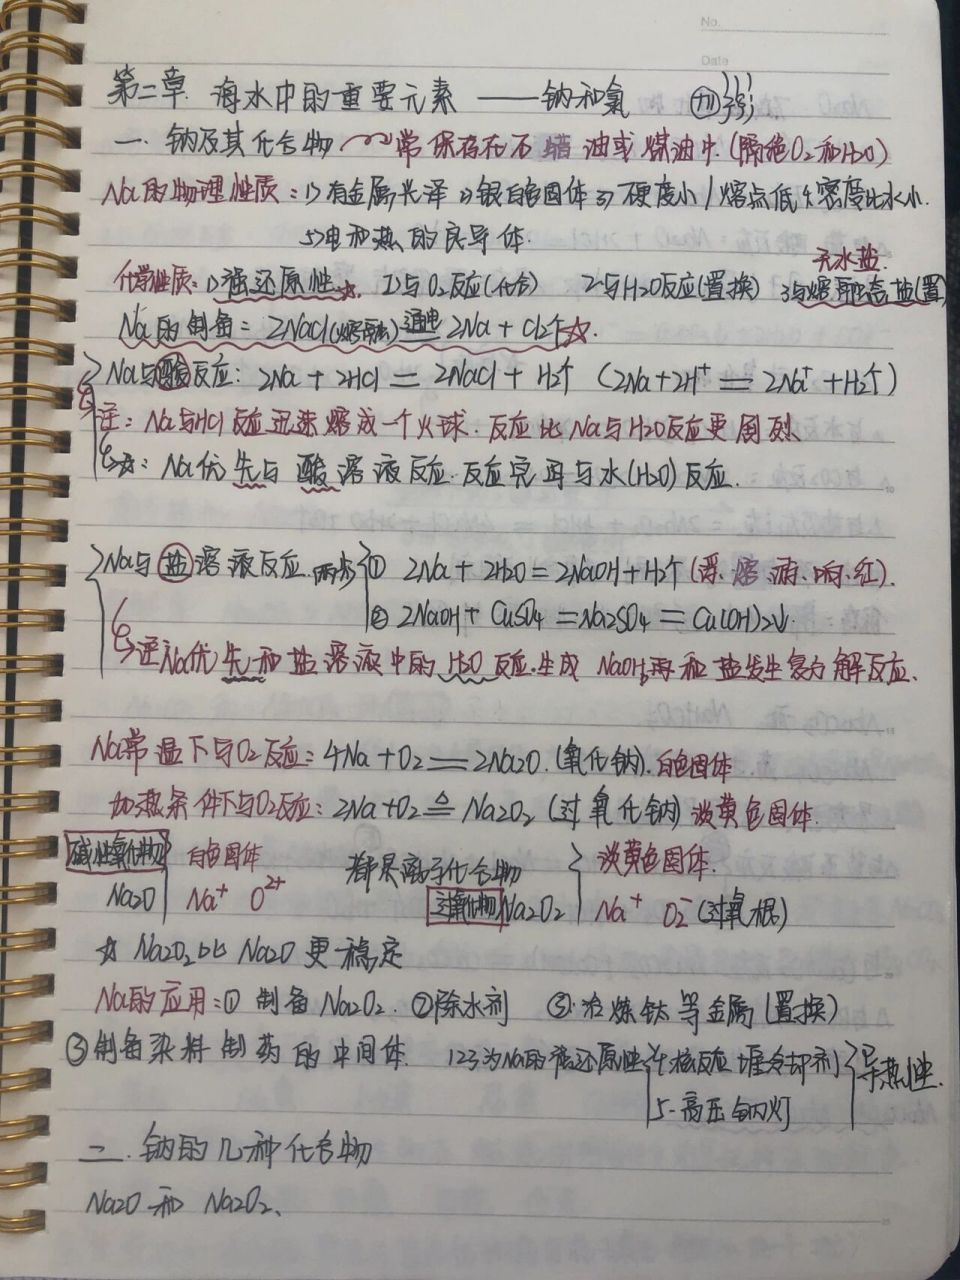 No.
Date
第二章. 海水中的重要元素 ——钠和氯
一. 钠及其化合物 常保存在石蜡油或煤油中.(隔绝O₂和H₂O)
Na的物理性质:1>有金属光泽 2>银白色固体 3>硬度小/熔点低 4密度比水小.
5>电和热的良导体.
无水盐.
化学性质:1>强还原性☆. 1>与O₂反应(化合) 2-与H₂O反应(置换) 3与熔融态盐(置
Na的制备=2NaCl(熔融)通电2Na+Cl₂↑☆.
Na与酸反应:2Na+2HCl=2NaCl+H₂↑ (2Na+2H⁺=2Na⁺+H₂↑)
注:Na与HCl反应迅速熔成一个火球.反应比Na与H₂O反应更剧烈.
☆:Na优先与酸溶液反应.反应完再与水(H₂O)反应.
Na与盐溶液反应.两步 ① 2Na+2H₂O=2NaOH+H₂↑(浮.熔.游.响.红).
② 2NaOH+CuSO₄=Na₂SO₄=Cu(OH)₂↓.
注Na优先和盐溶液中的H₂O反应.生成NaOH,再和盐发生复分解反应.
Na常温下与O₂反应:4Na+O₂=2Na₂O.(氧化钠).白色固体.
加热条件下与O₂反应:2Na+O₂≜Na₂O₂(过氧化钠)淡黄色固体.
碱性氧化物 白色固体 都是离子化合物 淡黄色固体.
Na₂O Na⁺ O²⁺ 过氧化物 Na₂O₂ Na⁺ O₂⁻(过氧根)
☆ Na₂O₂比Na₂O更稳定
Na的应用:① 制备Na₂O₂. ②除水剂 ③.冶炼钛等金属(置换)
③制备染料制药的中间体. 123为Na的强还原性 4.核反应堆冷却剂 导热性.
5.高压钠灯
二.钠的几种化合物
Na₂O和Na₂O₂、